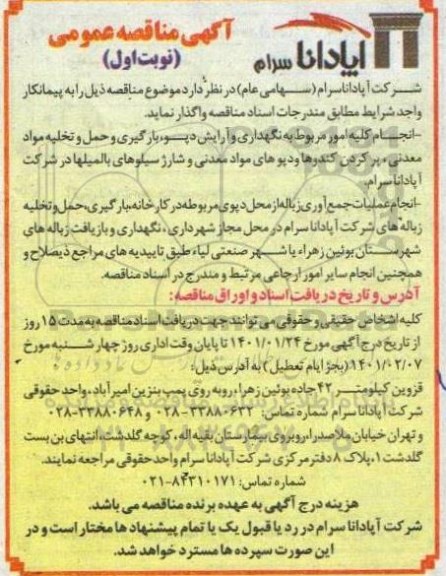 آگهی مناقصه عمومی
(نوبت اول)
آپادانا سرام
شرکت آپاداناسرام (سهامی عام) در نظر دارد موضوع مناقصه ذیل را به پیمانکار
واجد شرایط مطابق مندرجات اسناد مناقصه واگذار نماید.
-انجام کلیه امور مربوط به نگهداری و آرایش دپو، بارگیری و حمل و تخلیه مواد
معدنی، پر کردن کندوها و دپو های مواد معدنی و شارژ سیلوهای بالمیلها در شرکت
آپادانا سرام.
-انجام عملیات جمع آوری زباله از محل دپوی مربوطه در کارخانه، بارگیری، حمل و تخلیه
زباله های شرکت آپادانا سرام در محل مجاز شهرداری، نگهداری و بازیافت زباله های
شهرستان بوئین زهراء یا شهر صنعتی لیاء طبق تاییدیه های مراجع ذیصلاح و
همچنین انجام سایر امور ارجاعی مرتبط و مندرج در اسناد مناقصه.
آدرس و تاریخ دریافت اسناد و اوراق مناقصه:
کلیه اشخاص حقیقی و حقوقی، می توانند جهت دریافت اسناد مناقصه به مدت ۱۵ روز
از تاریخ درج آگهی مورخ ۱۴۰۱/۰۱/۲۴ تا پایان وقت اداری روز چهارشنبه مورخ
۱۴۰۱/۰۲/۰۷ (بجز ایام تعطیل) به آدرس ذیل:
قزوین کیلومتر ۴۲ جاده بوئین زهرا، روبه روی پمپ بنزین امیرآباد، واحد حقوقی
شرکت آپادانا سرام شماره تماس: ۳۳۸۸۰۶۳۲-۰۲۸ و ۳۳۸۸۰۶۴۸-۰۲۸
و تهران خیابان ملاصدرا، روبروی بیمارستان بقیه اله، کوچه گلدشت، انتهای بن بست
گلدشت ۱، پلاک ۸ دفتر مرکزی شرکت آپادانا سرام واحد حقوقی مراجعه نمایند.
شماره تماس: ۸۴۳۱۰۱۷۱-۰۲۱
هزینه درج آگهی به عهده برنده مناقصه می باشد.
شرکت آپادانا سرام در رد یا قبول یک یا تمام پیشنهاد ها مختار است و در
این صورت سپرده ها مسترد خواهد شد.